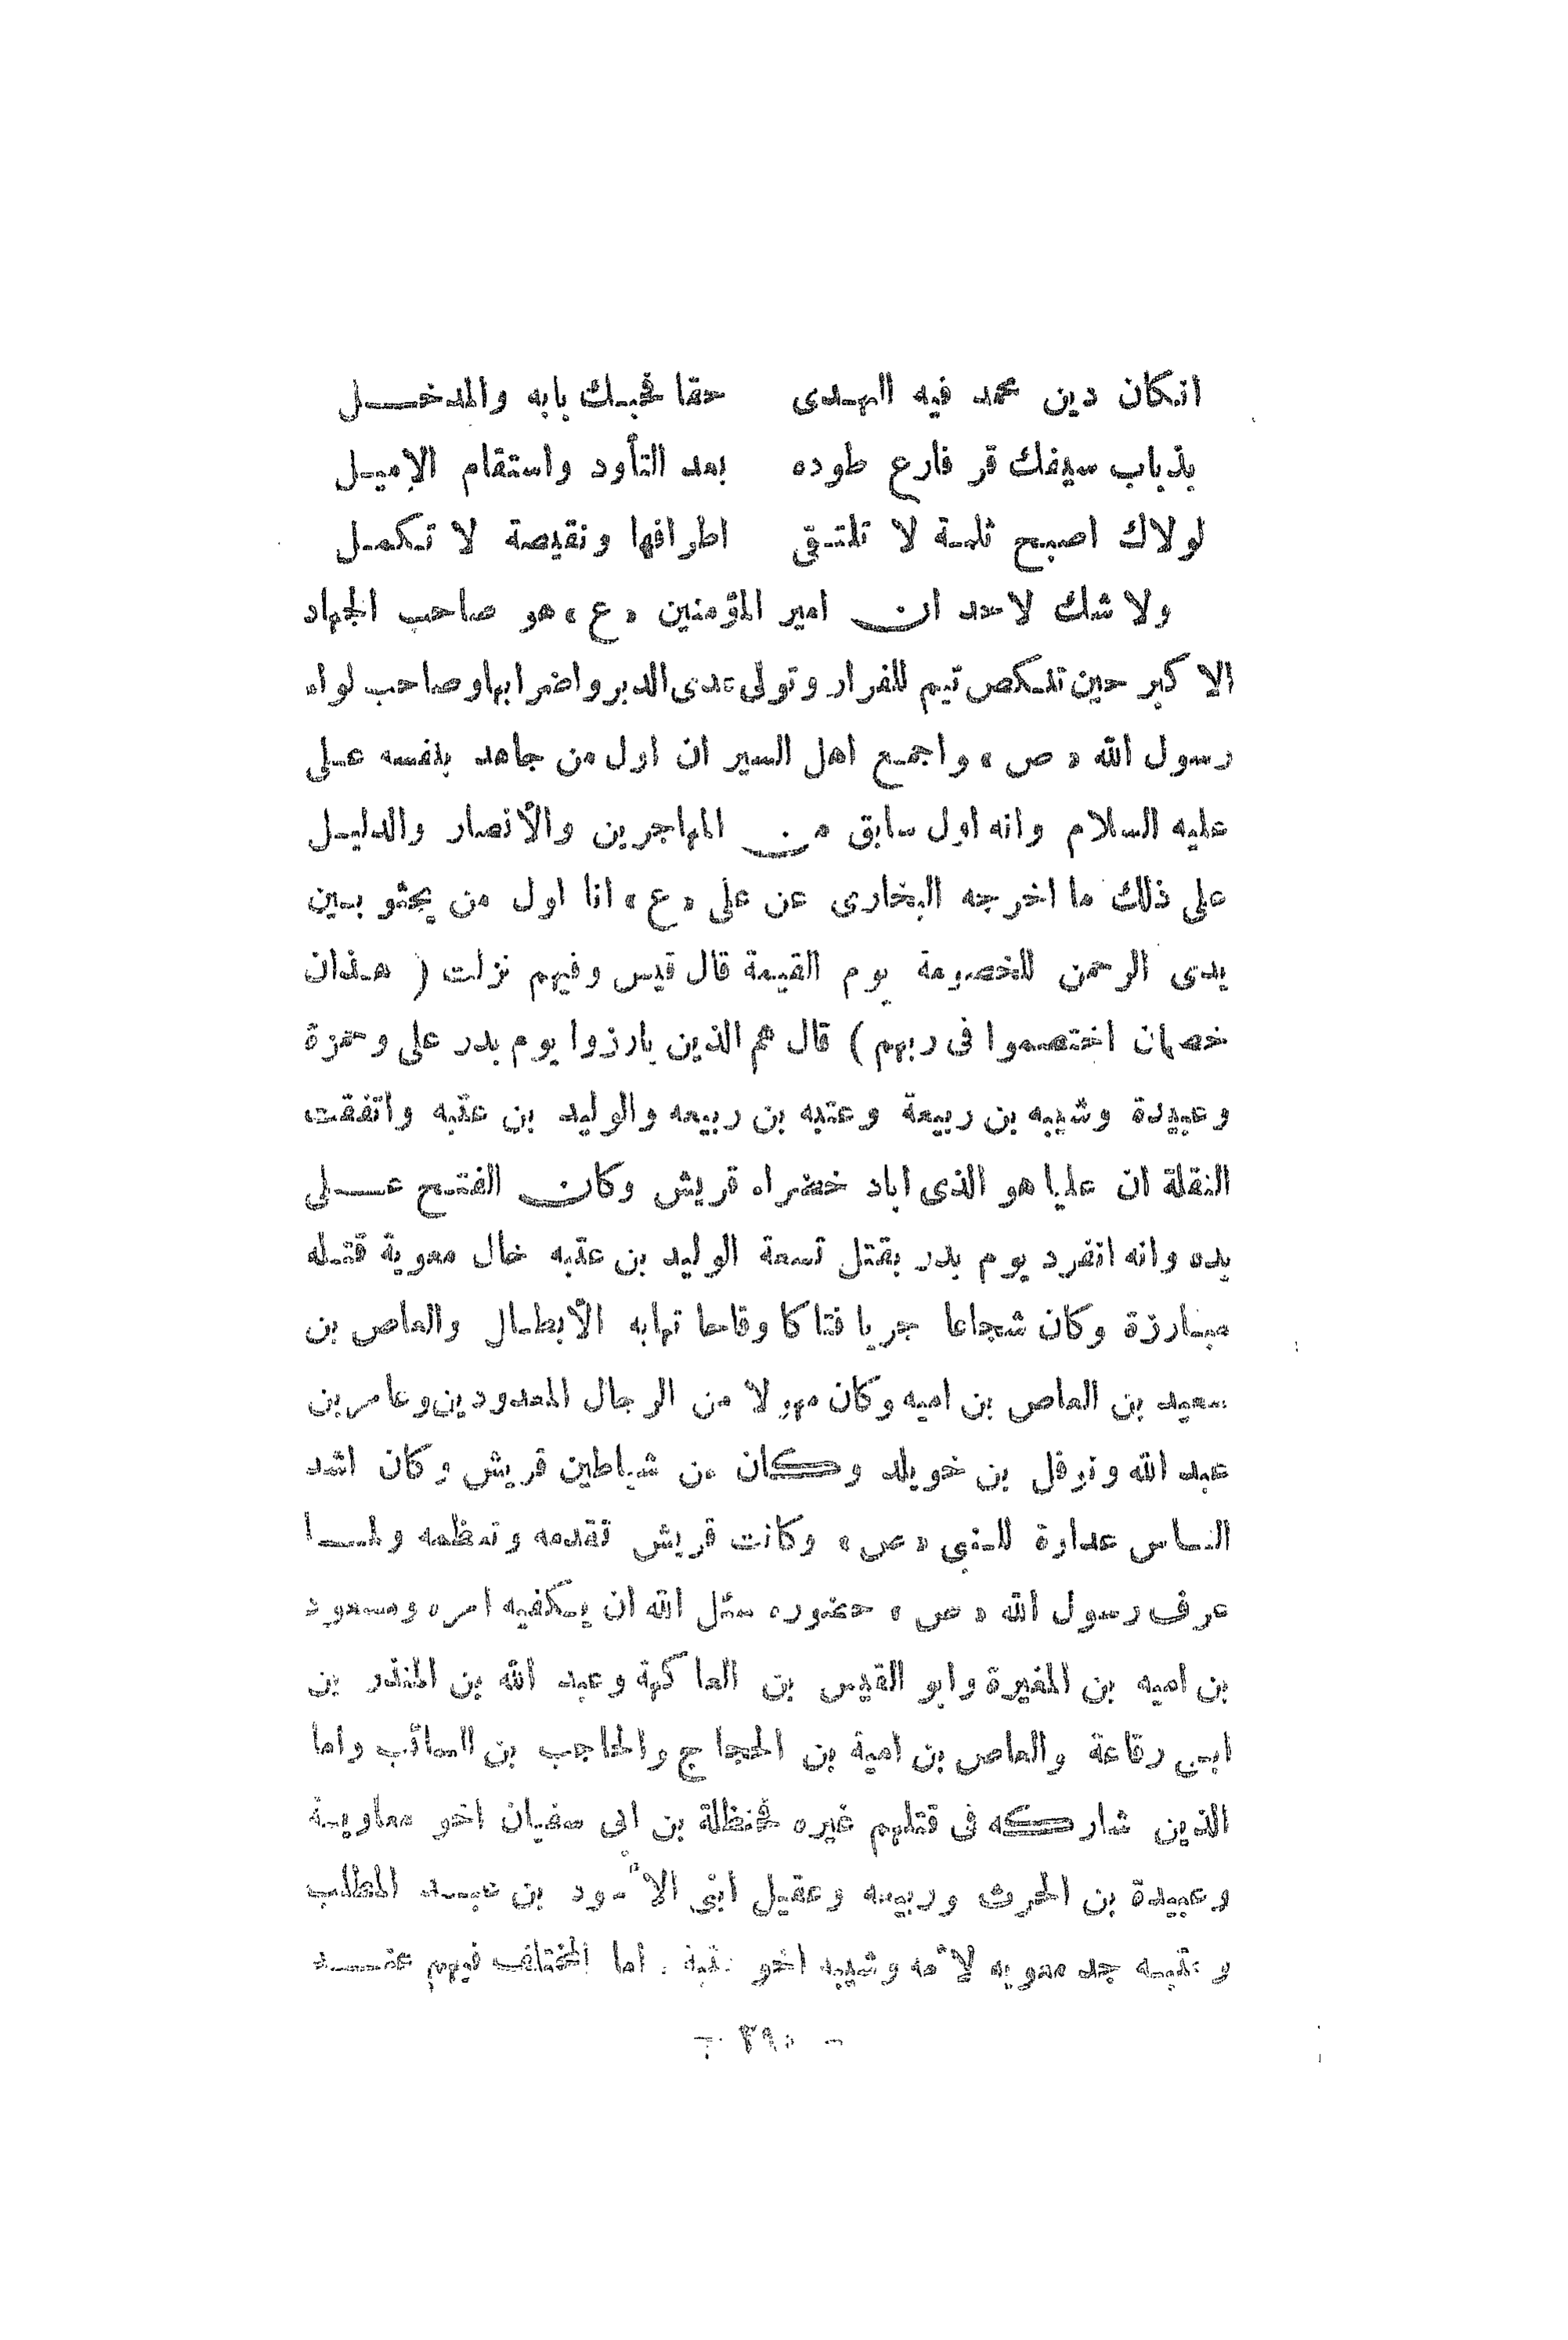 انكان دين محمد فيه الهدى حقا فحبك بابه والمدخل
بذباب سيفك قر فارع طوده بعد التأود واستقام الاميل
لولاك اصبح ثلمة لا تلتقى اطرافها ونقيصة لا تكمل
ولا شك لاحد ان امير المؤمنين «ع» هو صاحب الجهاد
الاكبر حين تنكص تيم للفرار وتولى عدى الدبر واضرابها وصاحب لواء
رسول الله «ص» واجمع اهل السير ان اول من جاهد بنفسه على
عليه السلام وانه اول سابق من المهاجرين والأنصار والدليل
على ذلك ما اخرجه البخارى عن على «ع» انا اول من يجثو بين
يدى الرحمن للخصومة يوم القيمة قال قيس وفيهم نزلت ( هذان
خصمان اختصموا فى ربهم ) قال هم الذين بارزوا يوم بدر على وحمزة
وعبيدة وشيبه بن ربيعة وعتبه بن ربيعه والوليد بن عتبه واتفقت
النقلة ان عليا هو الذى اباد خضراء قريش وكان الفتح على
يده وانه انفرد يوم بدر بقتل تسعة الوليد بن عتبه خال معوية قتله
مبارزة وكان شجاعا جريا فتاكا وقاحا تهابه الأبطال والعاص بن
سعيد بن العاص بن اميه وكان مهولا من الرجال المعدودين وعامر بن
عبد الله ونوفل بن خويلد وكان من شياطين قريش وكان اشد
الناس عداوة للنبى «ص» وكانت قريش تقدمه وتعظمه ولما
عرف رسول الله «ص» حضوره سئل الله ان يكفيه امره ومسعود
بن اميه بن المغيرة وابو القيس بن الفاكهة وعبد الله بن المنذر بن
ابى رفاعة والعاص بن امية بن الحجاج والحاجب بن السائب واما
الذين شاركه فى قتلهم غيره فحنظلة بن ابى سفيان اخو معاوية
وعبيدة بن الحرث وربيعه وعقيل ابنى الأسود بن عبد المطلب
وعتبه جد معويه لأمه وشيبه اخو عتبة . اما المختلف فيهم عند
- ٣٩٠ -